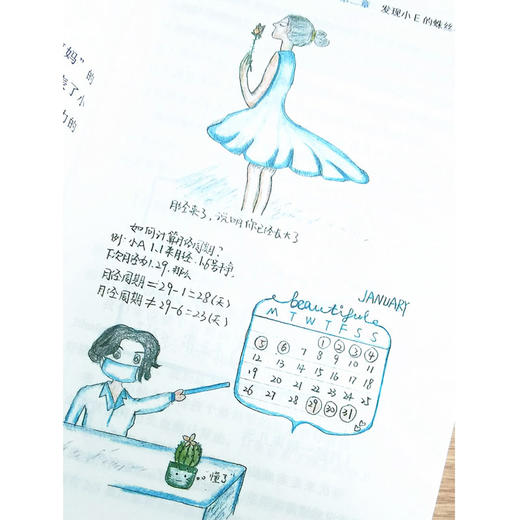 章 发现小E的蛛丝
妈”的
的
月经来了，说明你已经长大了
如何计算月经周期？
例：小A 1.1来月经，1.6号干净，
下次月经为1.29，那么
月经周期=29-1=28(天)
月经周期≠29-6=23(天)
JANUARY
beautiful
M T W T F S S
1 2 3 4
5 6 7 8 9 10 11
12 13 14 15 16 17 18
19 20 21 22 23 24 25
26 27 28 29 30 31
懂了